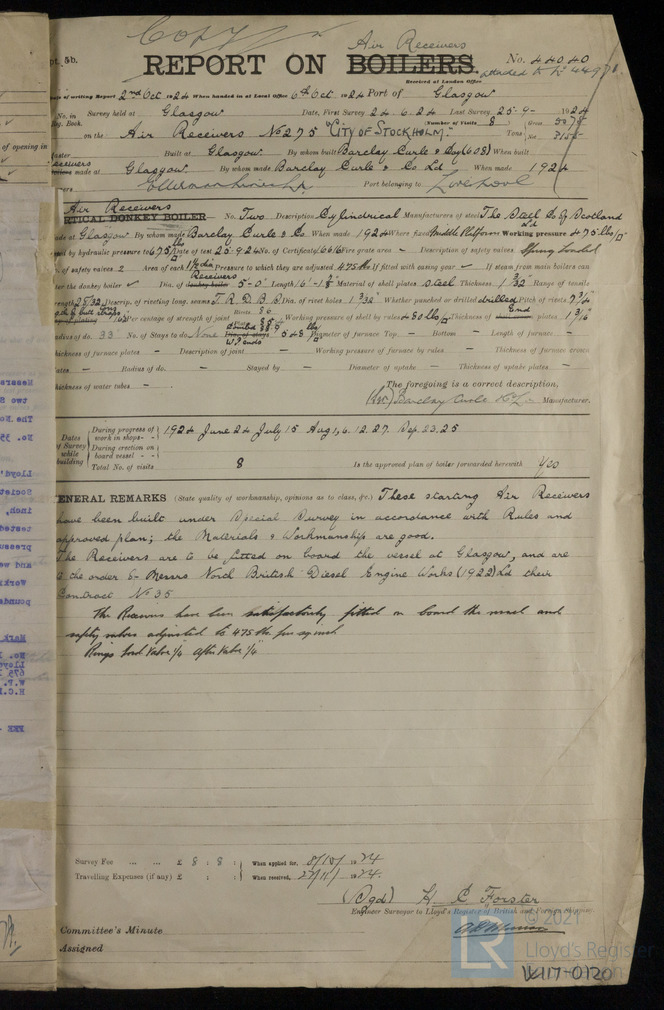 Copy
pt. 5b.
Air Receivers
REPORT ON BOILERS.
No. 44040
attached to No
Received at London Office
Date of writing Report 2nd Oct 1924 When handed in at Local Office 6th Oct 1924 Port of Glasgow
No. in Survey held at Glasgow Date, First Survey 24.6.24 Last Survey 25-9- 1924
Reg. Book. (Number of Visits 8) Gross
on the Air Receivers No 275 "CITY OF STOCKHOLM." Tons Net
Built at Glasgow By whom built Barclay Curle & Coy (608) When built
Receivers made at Glasgow By whom made Barclay Curle & Co Ld When made 1924
Port belonging to Liverpool
Air Receivers
VERTICAL DONKEY BOILER No. Two Description Cylindrical Manufacturers of steel The Steel Co of Scotland Ld
Made at Glasgow By whom made Barclay Curle & Co When made 1924 Where fixed Middle Platform Working pressure 475 lbs/□"
tested by hydraulic pressure to 675 lbs/□" Date of test 25.9.24 No. of Certificate 16616 Fire grate area - Description of safety valves Spring Loaded
No. of safety valves 2 Area of each Pressure to which they are adjusted 475 lbs If fitted with easing gear ✓ If steam from main boilers can
enter the donkey boiler ✓ Dia. of donkey boiler Receivers 5'-0" Length Material of shell plates Steel Thickness 1 3/32" Range of tensile
strength Descrip. of riveting long. seams T.R.D.B.S Dia. of rivet holes 1 3/32" Whether punched or drilled drilled Pitch of rivets 7 3/4"
Per centage of strength of joint Working pressure of shell by rules 480 lbs/□" Thickness of End plates 1 3/16"
Radius of do. 33" No. of Stays to do. None W.P. ends 548 lbs/□" Diameter of furnace Top - Bottom - Length of furnace -
Thickness of furnace plates - Description of joint - Working pressure of furnace by rules - Thickness of furnace crown
plates - Radius of do. - Stayed by - Diameter of uptake - Thickness of uptake plates -
Thickness of water tubes -
The foregoing is a correct description,
Barclay Curle & Co Manufacturer.
Dates of Survey while building
During progress of work in shops - - 1924 June 24 July 15 Aug 1, 6. 12. 27. Sep. 23. 25
During erection on board vessel - -
Total No. of visits 8 Is the approved plan of boiler forwarded herewith Yes
GENERAL REMARKS (State quality of workmanship, opinions as to class, &c.) These starting Air Receivers
have been built under Special Survey in accordance with Rules and
approved plan; the Materials & Workmanship are good.
The Receivers are to be fitted on board the vessel at Glasgow, and are
to the order of Messrs North British Diesel Engine Works (1922) Ld their
Contract No 35
The Receivers have been satisfactorily fitted on board the vessel and
safety valves adjusted to 475 lbs per sq inch
Rings Ford Valve 1/4 After Valve 1/4
Survey Fee ... ... £ 8 : 8 : When applied for, 8/10/ 1924
Travelling Expenses (if any) £ : : When received, 22/11/ 1924
(Sgd) H. C. Forster
Engineer Surveyor to Lloyd's Register of British and Foreign Shipping.
Committee's Minute
Assigned
LR
© 2021
Lloyd's Register
Foundation
W117-0120